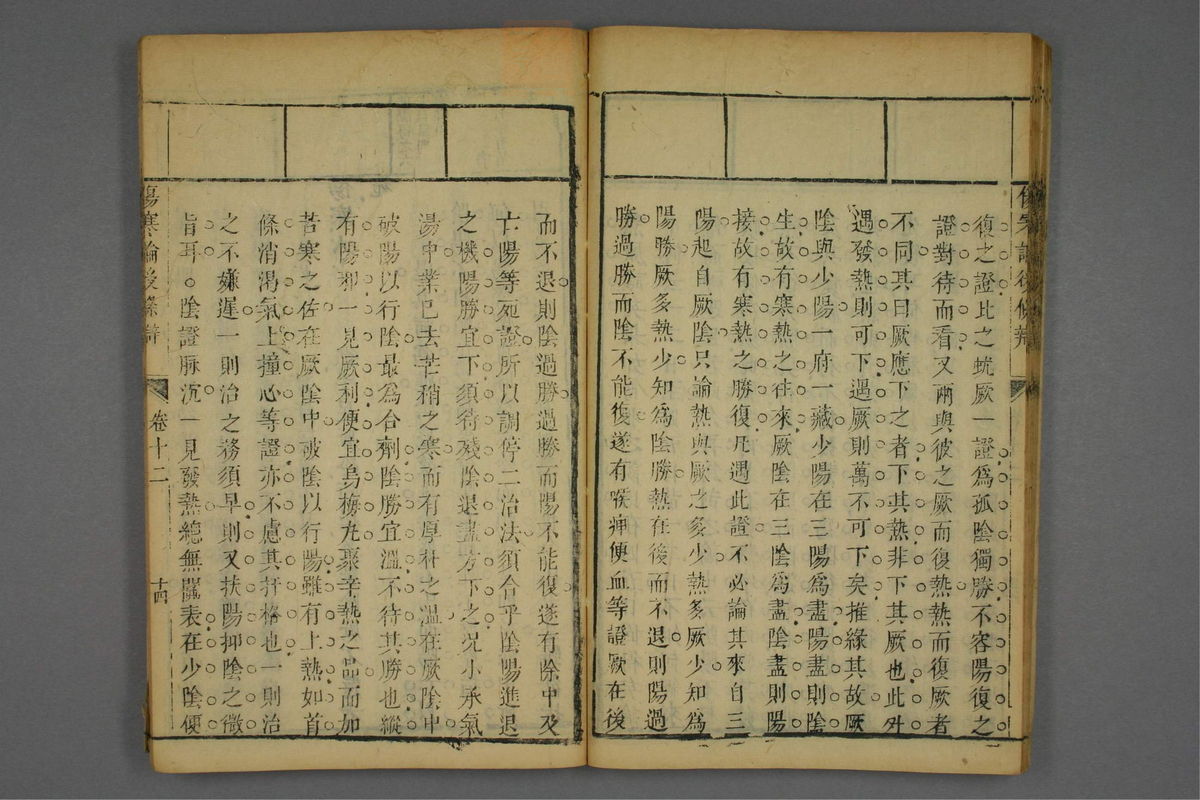 復之證比之蚘厥一證爲孤陰獨勝不容陽復之
證對待而看又兩與彼之厥而復熱熱而復厥者
不同其曰厥應下之者下其熱非下其厥也此外
遇發熱則可下遇厥則萬不可下矣推緣其故厥
陰與少陽一府一藏少陽在三陽爲盡陽盡則陰
生故有寒熱之往來厥陰在三陰爲盡陰盡則陽
接故有寒熱之勝復凡遇此證不必論其來自三
陽起自厥陰只論熱與厥之多少熱多厥少知爲
陽勝厥多熱少知爲陰勝熱在後而不退則陽過
勝過勝而陰不能復遂有喉痺便血等證厥在後
而不退則陰過勝過勝而陽不能復遂有除中及
亡陽等死證所以調停二治法須合乎陰陽進退
之機陽勝宜下須待殘陰退盡方下之況小承氣
湯中業已去芒硝之寒而有厚朴之溫在厥陰中
破陽以行陰最爲合劑陰勝宜溫不待其勝也縱
有陽邪一見厥利便宜烏梅丸聚辛熱之品而加
苦寒之佐在厥陰中破陰以行陽雖有上熱如首
條消渴氣上撞心等證亦不慮其扞格也一則治
之不嫌遲一則治之務須早則又扶陽抑陰之微
旨耳○陰證脉沉一見發熱總無關表在少陰便
傷寒論後條辯
卷十二
十四